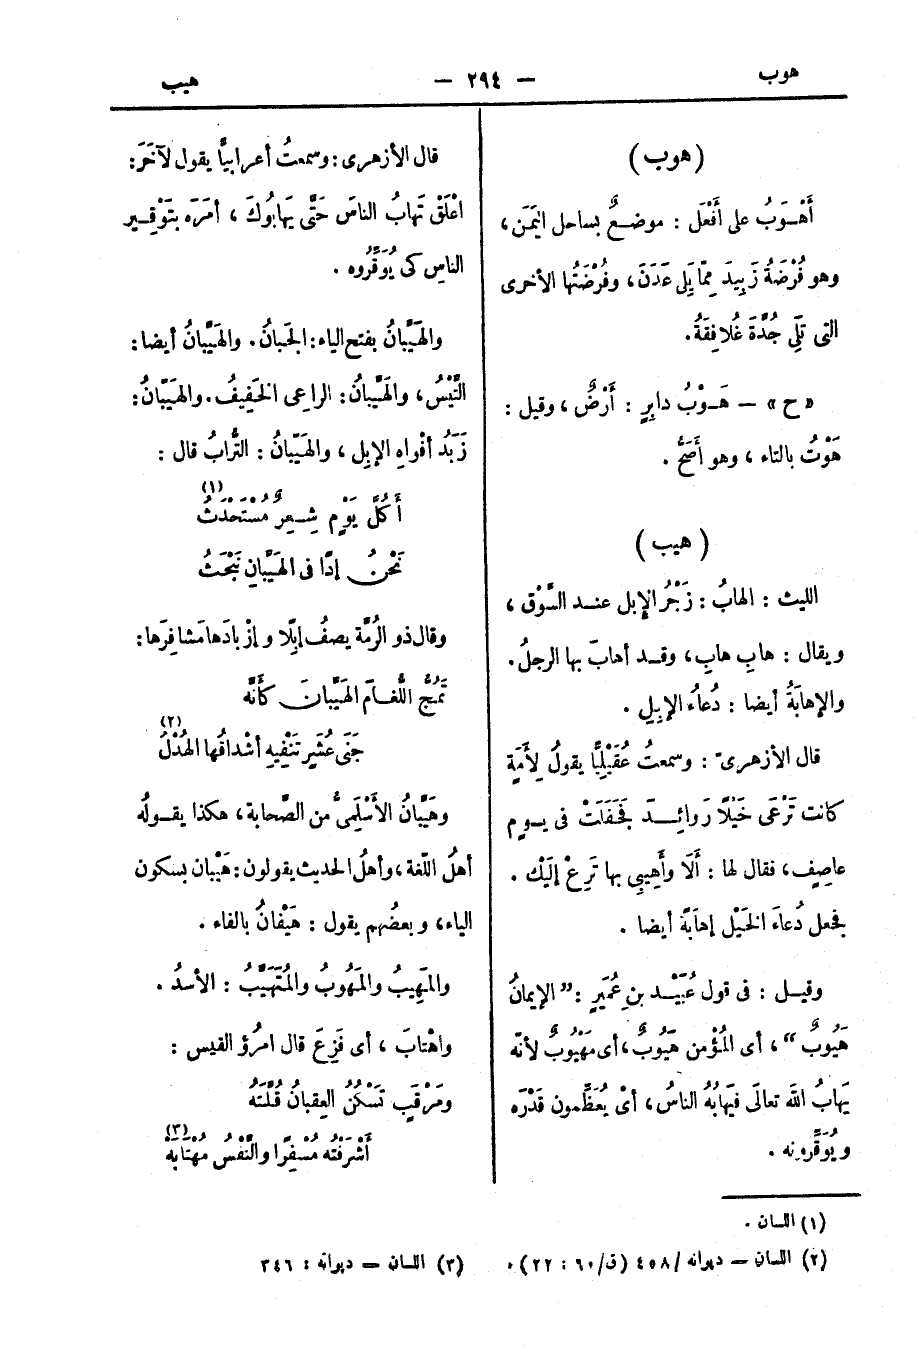 هوب
— ٢٩٤ —
هيب
(هوب)
أَهْـوَبُ على أَفْعَل : موضـعٌ بساحل اليَمَن ،
وهو فُرْضَةُ زَبِيدَ مِمّا يَلِى عَدَنَ ، وفُرْضَتُها الأخرى
التى تَلِى جُدَّةَ غُلافِقَةُ.
« ح » — هَـوْبُ دابِرٍ : أَرْضٌ ، وقيل :
هَوْتُ بالتاء ، وهو أَصَحُّ .
(هيب)
الليث : الهابُ : زَجْرُ الإبل عنـد السَّوْقِ ،
ويقال : هابِ هابِ ، وقـد أهابَ بها الرجلُ.
والإهابَةُ أيضا : دُعاءُ الإبلِ .
قال الأزهرىّ : وسمعتُ عُقَيْلِيًّا يقولُ لِأَمَةٍ
كانت تَرْعَى خَيْلًا رَوائِـدَ فَجَفَلَتْ فى يـومٍ
عاصِفٍ ، فقال لها : أَلَا وأَهِيبِى بها تَرِعْ إلَيْك .
فجعل دُعاءَ الخَيْل إهابَةً أيضا .
وقيـل : فى قول عُبَيْـدِ بنِ عُمَيرٍ : ” الإيمانُ
هَيُوبٌ “ ، أى المُؤْمن هَيُوبٌ ، أى مَهْيُوبٌ لأنّه
يَهابُ اللهَ تعالَى فيَهابُهُ الناسُ ، أىْ يُعَظِّمون قَدْرَه
ويُوَقِّرونه .
قال الأزهرى : وسمعتُ أعرابيًّا يقول لآخَرَ :
اعْلَقْ تَهابُ الناسَ حَتَّى يَهابُوكَ ، أمَرَه بتَوْقِـيرِ
الناسِ كى يُوَقِّرُوه .
والهَيَّبانُ بفتح الياء : الجَبانُ. والهَيَّبانُ أيضا :
التَّيْسُ ، والهَيَّبانُ : الراعِى الخَفِيفُ . والهَيَّبانُ :
زَبَدُ أفْواهِ الإبل ، والهَيَّبانُ : التُّرابُ قال :
أَكُلَّ يَوْمٍ شِـعِرٌ مُسْتَحْدَثُ (١)
نَحْنُ إذًا فى الهَيَّبانِ نَبْحَثُ
وقال ذو الرُمَّة يصفُ إبِلًا وإزْبادَها مَشافِرَها :
تَمُجُّ اللُّغـامَ الهَيَّبانَ كأنَّه
جَنَى عُشَرٍ تَنْفِيهِ أشْداقُها الهُدْلُ (٢)
وهَيَّبانُ الأَسْلَمِىُّ من الصَّحابة ، هكذا يقـولُه
أهلُ اللّغة ، وأهلُ الحديث يقولون : هَيْبان بسكون
الياء ، وبعضُهم يقول : هَيْفانُ بالفاء .
والمَهِيبُ والمَهُوبُ والمُتَهَيَّبُ : الأسدُ .
واهْتابَ ، أى فَزِعَ قال امرُؤ القيس :
ومَرْقَبٍ تَسْكُنُ العِقبانُ قُلَّتَهُ
أشْرَفْتُه مُسْفِرًا والنَّفْسُ مُهْتابَهْ (٣)
(١) اللسان .
(٢) اللسان — ديوانه / ٤٥٨ (ق/٦٠ : ٢٢) .
(٣) اللسان — ديوانه : ٣٤٦